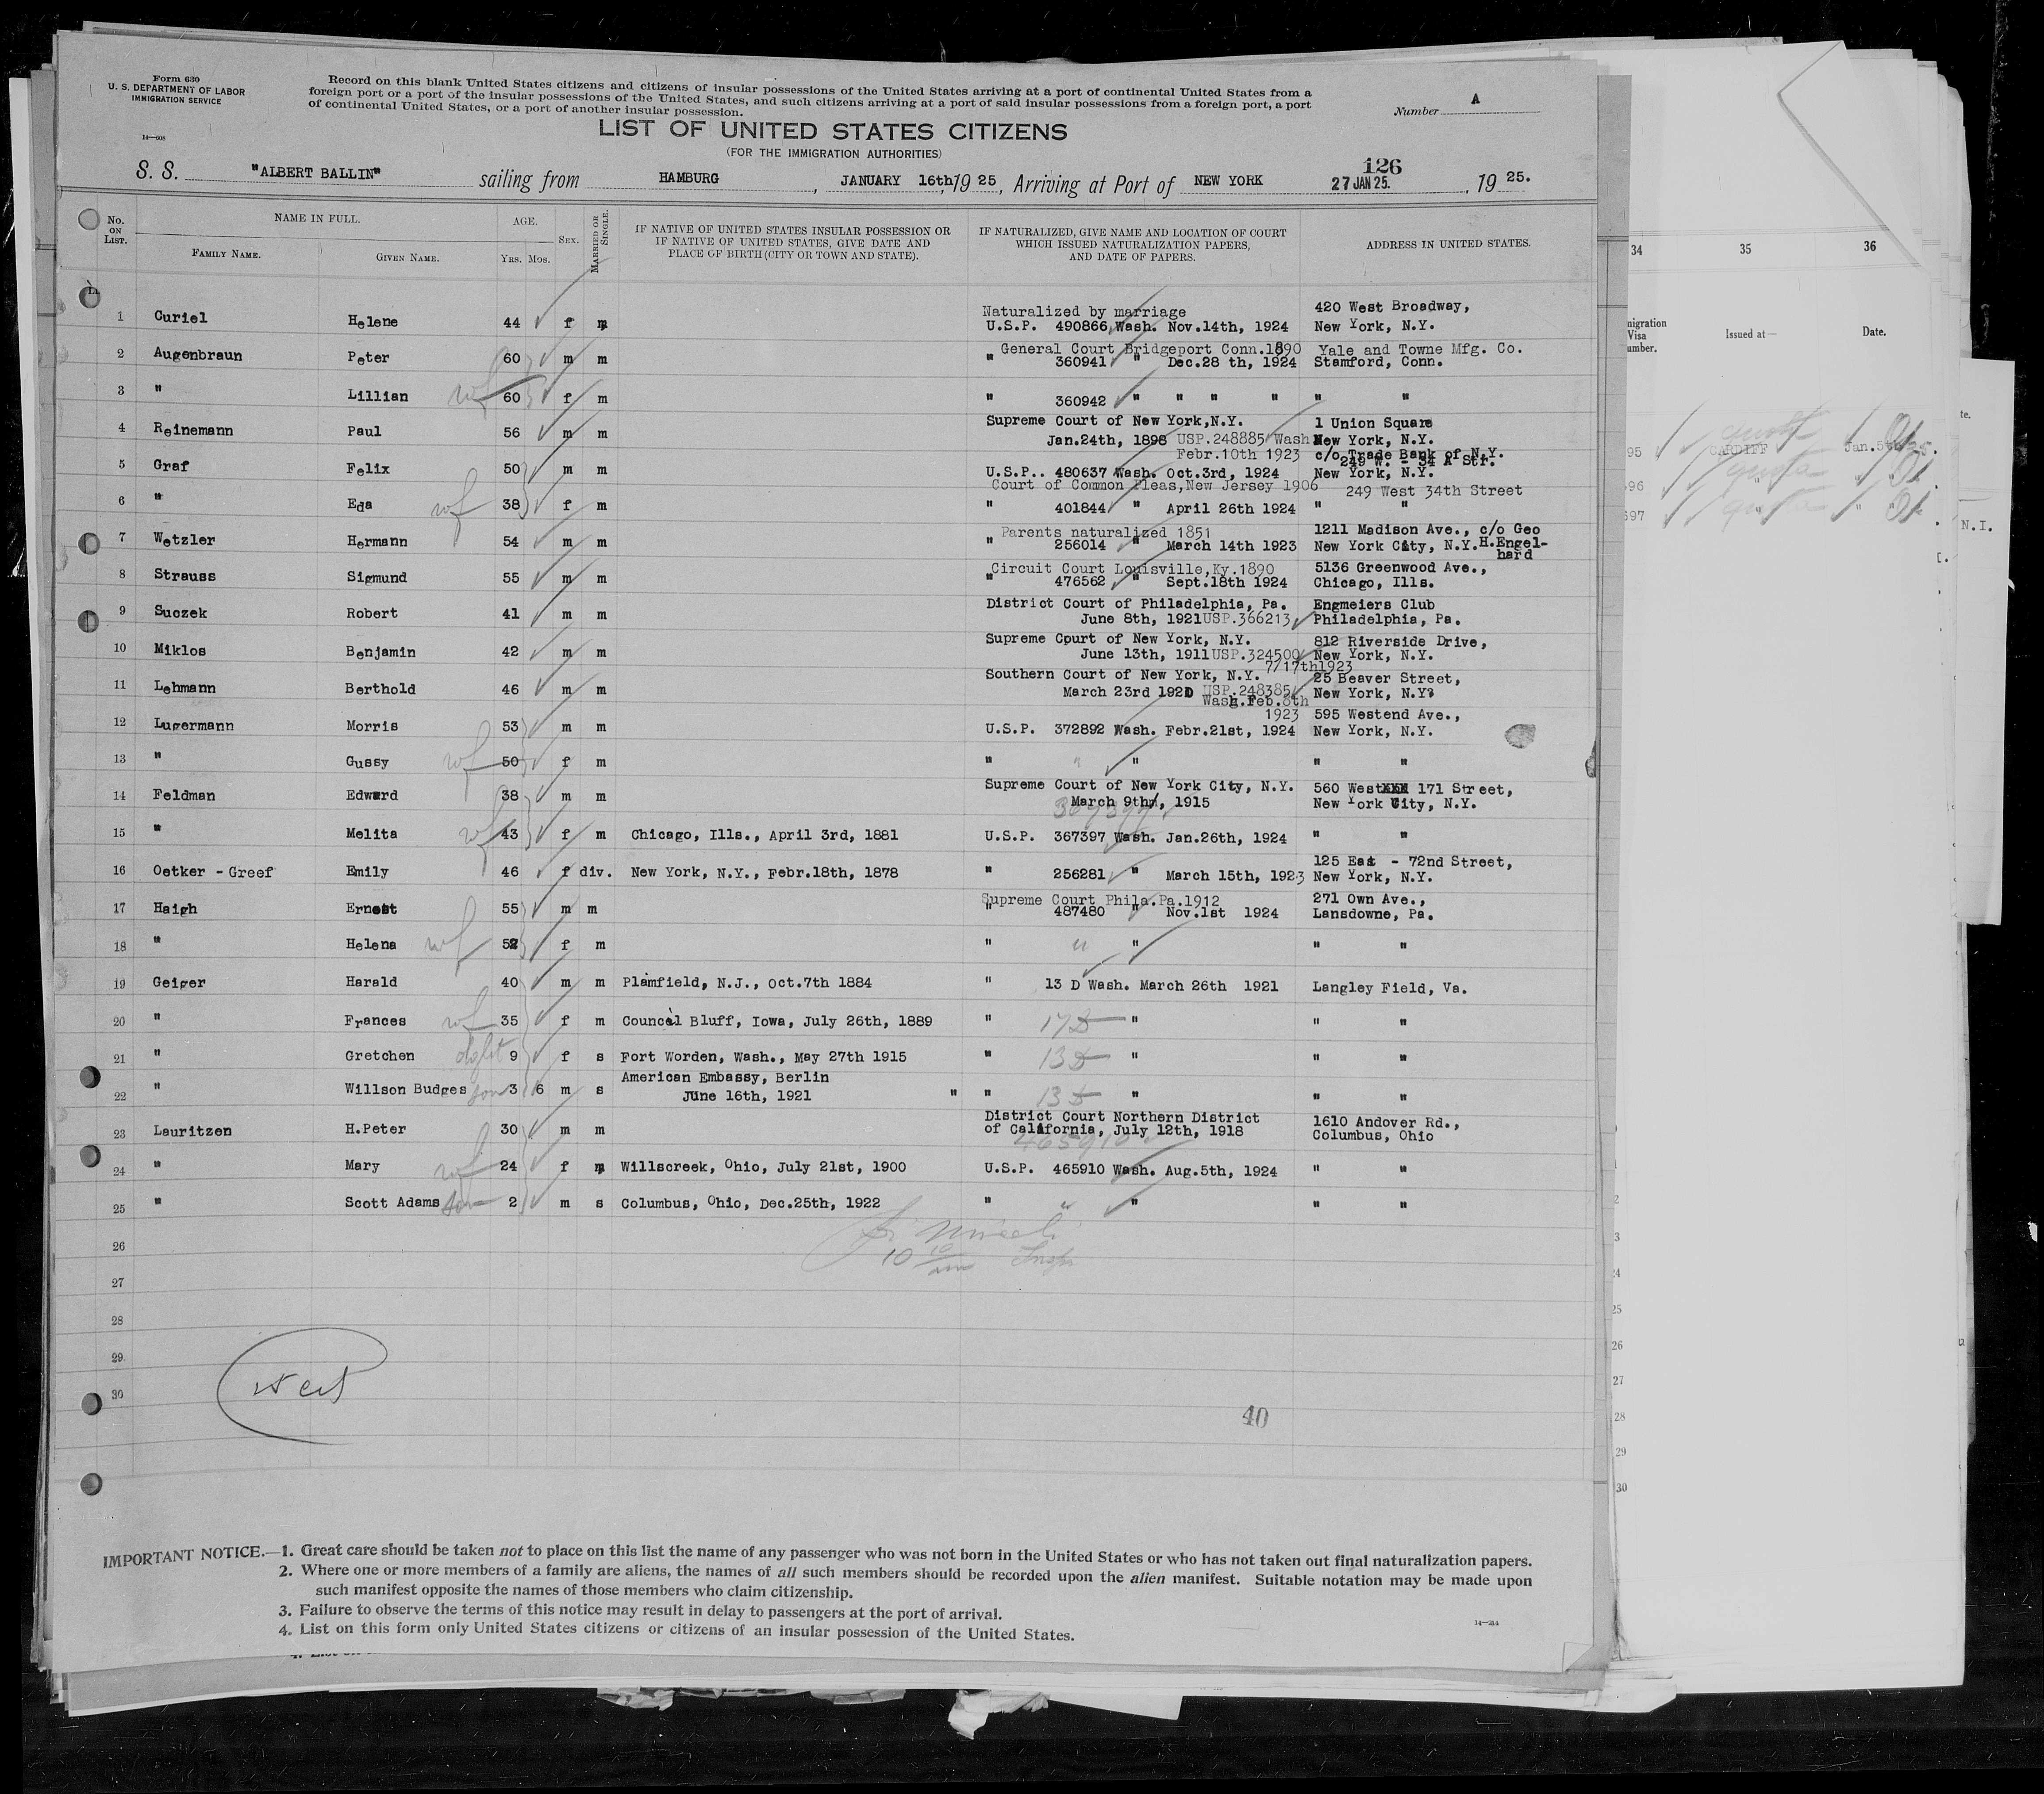 Form 630
U. S. DEPARTMENT OF LABOR
IMMIGRATION SERVICE
14—608
Record on this blank United States citizens and citizens of insular possessions of the United States arriving at a port of continental United States from a
foreign port or a port of the insular possessions of the United States, and such citizens arriving at a port of said insular possessions from a foreign port, a port
of continental United States, or a port of another insular possession.
Number A
LIST OF UNITED STATES CITIZENS
(FOR THE IMMIGRATION AUTHORITIES)
126
S. S. "ALBERT BALLIN" sailing from HAMBURG, JANUARY 16th, 1925, Arriving at Port of NEW YORK 27 JAN 25. , 19 25.
No. ON LIST. NAME IN FULL. AGE. SEX. MARRIED OR SINGLE. IF NATIVE OF UNITED STATES INSULAR POSSESSION OR IF NATIVE OF UNITED STATES, GIVE DATE AND PLACE OF BIRTH (CITY OR TOWN AND STATE). IF NATURALIZED, GIVE NAME AND LOCATION OF COURT WHICH ISSUED NATURALIZATION PAPERS, AND DATE OF PAPERS. ADDRESS IN UNITED STATES.
FAMILY NAME. GIVEN NAME. YRS. MOS.
Naturalized by marriage 420 West Broadway,
1 Curiel Helene 44 f m U.S.P. 490866 Wash. Nov.14th, 1924 New York, N.Y.
General Court Bridgeport Conn.1890 Yale and Towne Mfg. Co.
2 Augenbraun Peter 60 m m " 360941 " Dec.28 th, 1924 Stamford, Conn.
3 " Lillian wf 60 f m " 360942 " " " " " "
Supreme Court of New York,N.Y. 1 Union Square
4 Reinemann Paul 56 m m Jan.24th, 1898 USP.248885 Wash New York, N.Y.
Febr.10th 1923 c/o Trade Bank of N.Y.
249 W. - 34 A Str.
5 Graf Felix 50 m m U.S.P.. 480637 Wash. Oct.3rd, 1924 New York, N.Y.
Court of Common Pleas,New Jersey 1906 249 West 34th Street
6 " Eda wf 38 f m " 401844 " April 26th 1924 " "
Parents naturalized 1851 1211 Madison Ave., c/o Geo
7 Wetzler Hermann 54 m m " 256014 " March 14th 1923 New York City, N.Y. H.Engel-
hard
Circuit Court Louisville,Ky.1890 5136 Greenwood Ave.,
8 Strauss Sigmund 55 m m " 476562 " Sept.18th 1924 Chicago, Ills.
District Court of Philadelphia, Pa. Engmeiers Club
9 Suczek Robert 41 m m June 8th, 1921 USP.366213 Philadelphia, Pa.
Supreme Court of New York, N.Y. 812 Riverside Drive,
10 Miklos Benjamin 42 m m June 13th, 1911 USP.324500 New York, N.Y.
7/17th1923
Southern Court of New York, N.Y. 25 Beaver Street,
11 Lehmann Berthold 46 m m March 23rd 1921 USP.248385 New York, N.Y.
Wash.Feb.8th
1923 595 Westend Ave.,
12 Lugermann Morris 53 m m U.S.P. 372892 Wash. Febr.21st, 1924 New York, N.Y.
13 " Gussy wf 50 f m " " " " "
Supreme Court of New York City, N.Y. 560 West 171 Street,
14 Feldman Edward 38 m m March 9th, 1915 New York City, N.Y.
15 " Melita wf 43 f m Chicago, Ills., April 3rd, 1881 U.S.P. 367397 Wash. Jan.26th, 1924 " "
125 East - 72nd Street,
16 Oetker - Greef Emily 46 f div. New York, N.Y., Febr.18th, 1878 " 256281 " March 15th, 1923 New York, N.Y.
Supreme Court Phila.Pa.1912 271 Own Ave.,
17 Haigh Ernest 55 m m " 487480 " Nov.1st 1924 Lansdowne, Pa.
18 " Helena wf 52 f m " " " " "
19 Geiger Harald 40 m m Plamfield, N.J., Oct.7th 1884 " 13 D Wash. March 26th 1921 Langley Field, Va.
20 " Frances wf 35 f m Councel Bluff, Iowa, July 26th, 1889 " 17 D " " "
21 " Gretchen dght 9 f s Fort Worden, Wash., May 27th 1915 " 13 D " " "
American Embassy, Berlin
22 " Willson Budges son 3 6 m s June 16th, 1921 " " 13 D " " "
District Court Northern District 1610 Andover Rd.,
23 Lauritzen H.Peter 30 m m of California, July 12th, 1918 Columbus, Ohio
465910
24 " Mary wf 24 f m Willscreek, Ohio, July 21st, 1900 U.S.P. 465910 Wash. Aug.5th, 1924 " "
25 " Scott Adams son 2 m s Columbus, Ohio, Dec.25th, 1922 " " " " "
26
27
28
29
30
West
40
IMPORTANT NOTICE.—1. Great care should be taken not to place on this list the name of any passenger who was not born in the United States or who has not taken out final naturalization papers.
2. Where one or more members of a family are aliens, the names of all such members should be recorded upon the alien manifest. Suitable notation may be made upon
such manifest opposite the names of those members who claim citizenship.
3. Failure to observe the terms of this notice may result in delay to passengers at the port of arrival.
4. List on this form only United States citizens or citizens of an insular possession of the United States.
14—214
34 35 36
migration Visa umber. Issued at— Date.
95 quota CARDIFF Jan.5th 25.
96 quota " "
697 quota " "
te.
N.I.
24
25
26
27
28
29
30